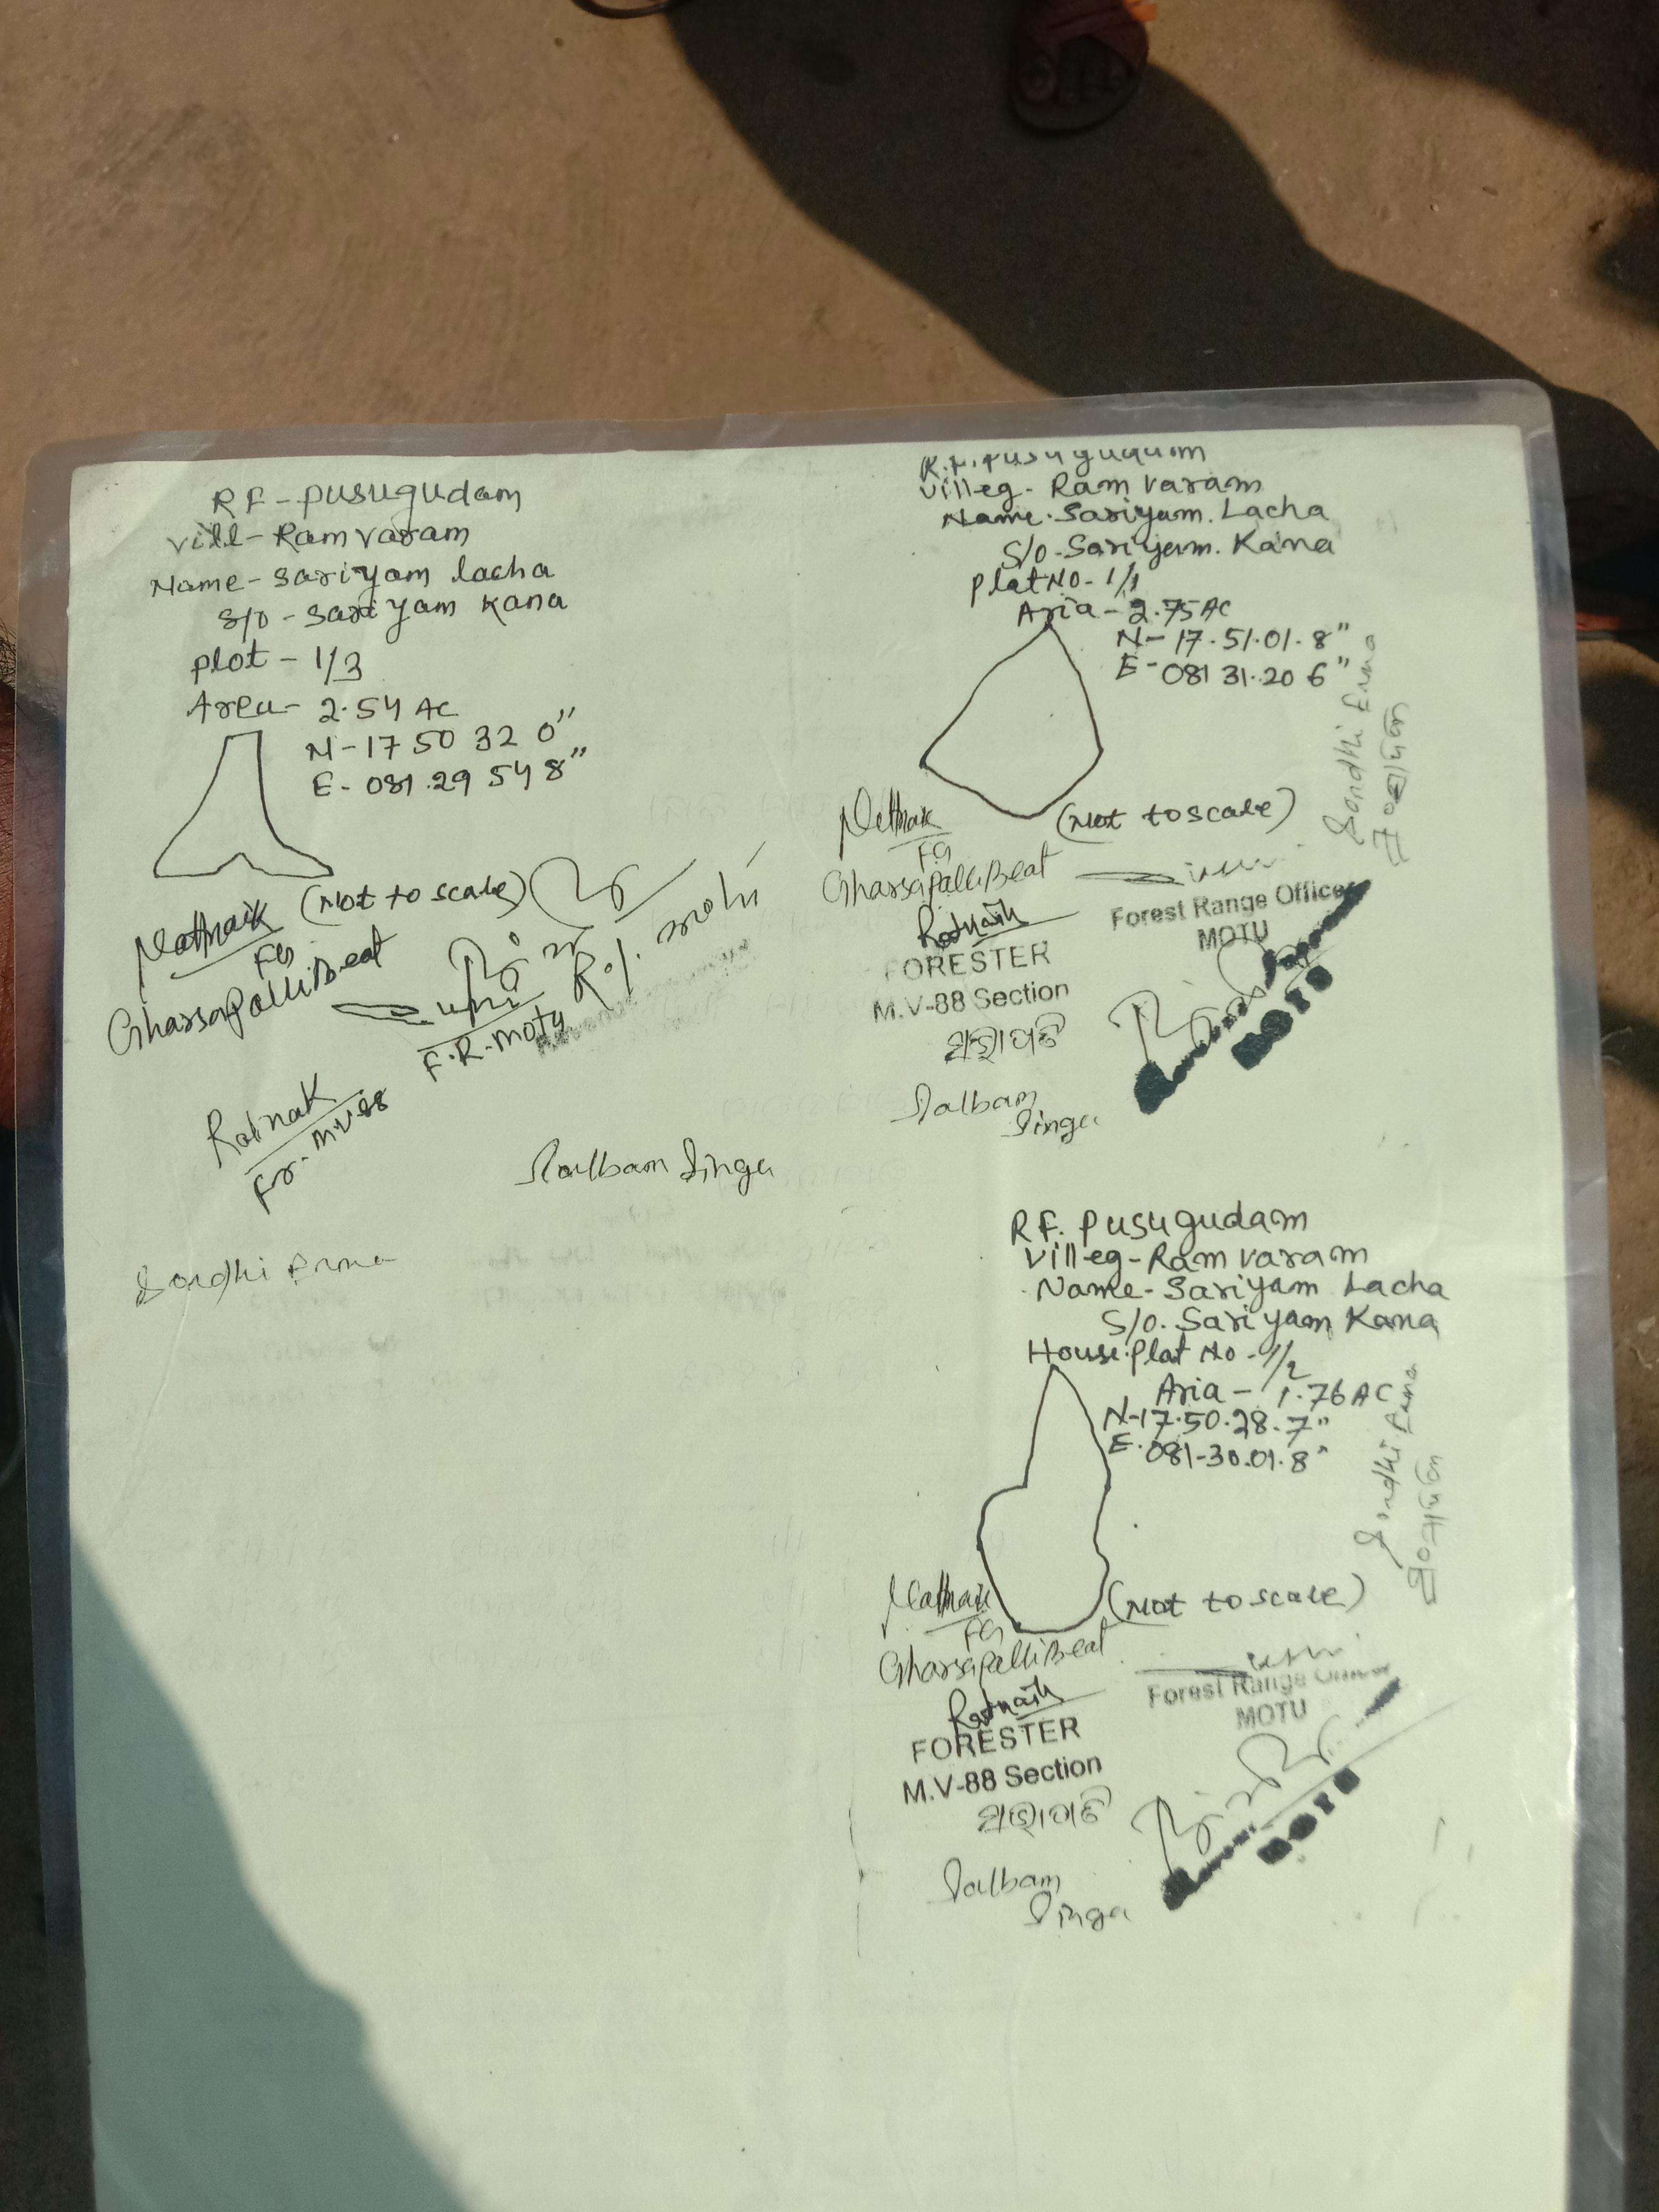 RF - pusugudam
vill - Ram varam
Name - sariyam lacha
S/o - sariyam Kana
plot - 1/3
Area - 2.54 AC
N - 17 50 32 0"
E - 081.29 54 8"
(Not to scale)
FG
GharsapalliBeat
F.R. Motu
Ratnak
Fr. M.V.88
Salbam Singa
Sondhi Erma
R.F. Pusugudam
villeg - Ram varam
Name. Sariyam. Lacha
S/o - Sariyam. Kana
Plat No - 1/1
Aria - 2.75 AC
N - 17.51.01.8"
E - 081 31.20 6"
(Not to scale)
FG
GharsapalliBeat
Forest Range Officer
MOTU
Ratnaik
FORESTER
M.V-88 Section
Salbam
Singa
Sondhi Erma
RF. Pusugudam
villeg - Ram varam
Name - Sariyam Lacha
S/o. Sariyam Kana
House. Plat No - 1/2
Aria - 1.76 AC
N-17.50.28.7"
E. 081-30.01.8"
(Not to scale)
FG
GharsapalliBeat
Forest Range Officer
MOTU
Ratnaik
FORESTER
M.V-88 Section
Salbam
Singa
Sondhi Erma